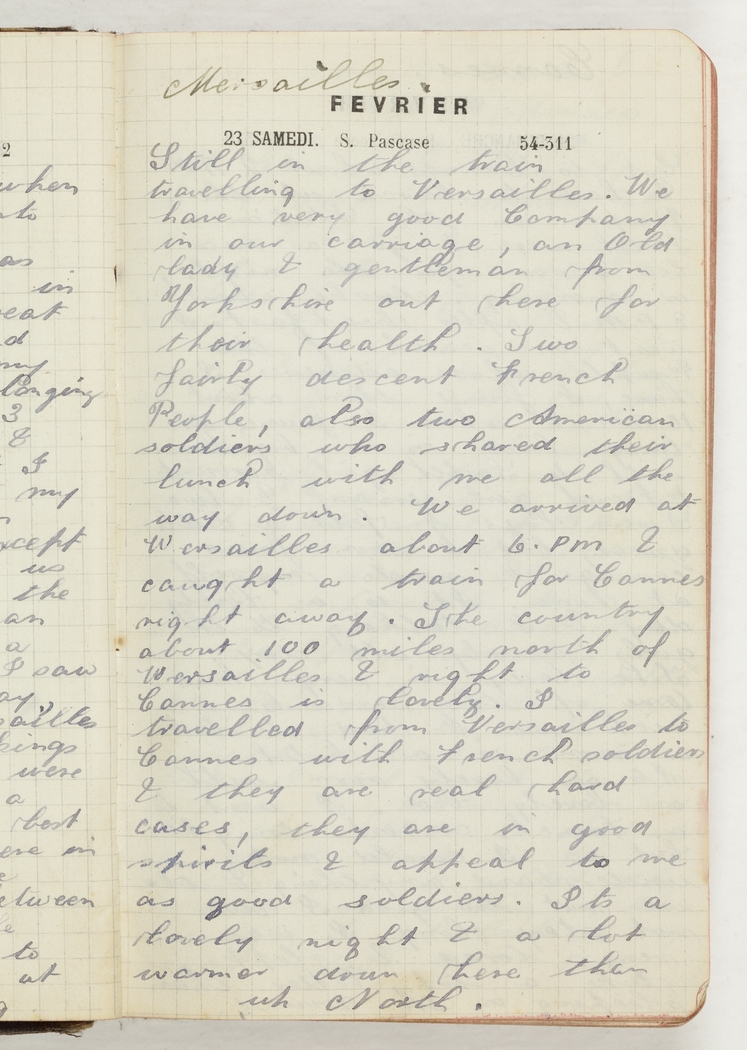 when
nto
as
in
eat
d
my
longing
3
&
I
my
xcept
us
the
an
a
I saw
ay
sailles
kings
were
a
best
ere in
etween
to
at
2
Mersailles
FEVRIER
23 SAMEDI. S. Pascase 54-311
Still in the train
travelling to Versailles. We
have very good Company
in our carriage, an Old
lady & gentleman from
Yorkshire out here for
their health. Two
fairly descent French
People, also two American
soldiers who shared their
lunch with me all the
way down. We arrived at
Wersailles about 6.Pm &
caught a train for Cannes
right away. The country
about 100 miles north of
Wersailles & right to
Cannes is lovely. I
travelled from Versailles to
Cannes with French soldiers
& they are real hard
cases, they are in good
spirits & appeal to me
as good soldiers. Its a
lovely night & a lot
warmer down here than
uh North.